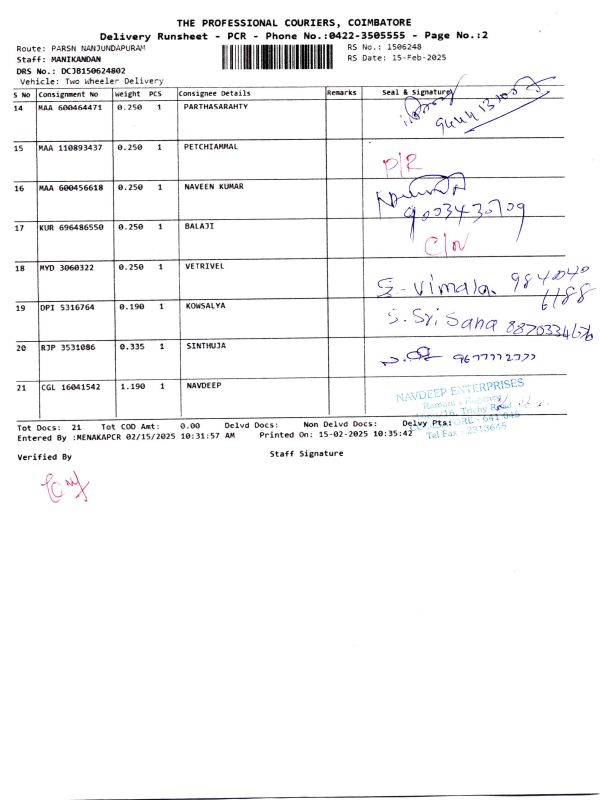 THE PROFESSIONAL COURIERS, COIMBATORE
Delivery Runsheet - PCR - Phone No.:0422-3505555 - Page No.:2
Route: PARSN NANJUNDAPURAM RS No.: 1506248
Staff: MANIKANDAN RS Date: 15-Feb-2025
DRS No.: DCJB150624802
Vehicle: Two Wheeler Delivery
S No Consignment No Weight PCS Consignee Details Remarks Seal & Signature
14 MAA 600464471 0.250 1 PARTHASARAHTY
15 MAA 110893437 0.250 1 PETCHIAMMAL P/R
16 MAA 600456618 0.250 1 NAVEEN KUMAR
9003430709
17 KUR 696486550 0.250 1 BALAJI C/N
18 MYD 3060322 0.250 1 VETRIVEL S-Vimala. 984040
6188
19 DPI 5316764 0.190 1 KOWSALYA S. Sri Sana
20 RJP 3531086 0.335 1 SINTHUJA
21 CGL 16041542 1.190 1 NAVDEEP NAVDEEP ENTERPRISES
Trichy Road
COIMBATORE - 641
Tel Fax : 2313645
Tot Docs: 21 Tot COD Amt: 0.00 Delvd Docs: Non Delvd Docs: Delvy Pts:
Entered By :MENAKAPCR 02/15/2025 10:31:57 AM Printed On: 15-02-2025 10:35:42
Verified By Staff Signature